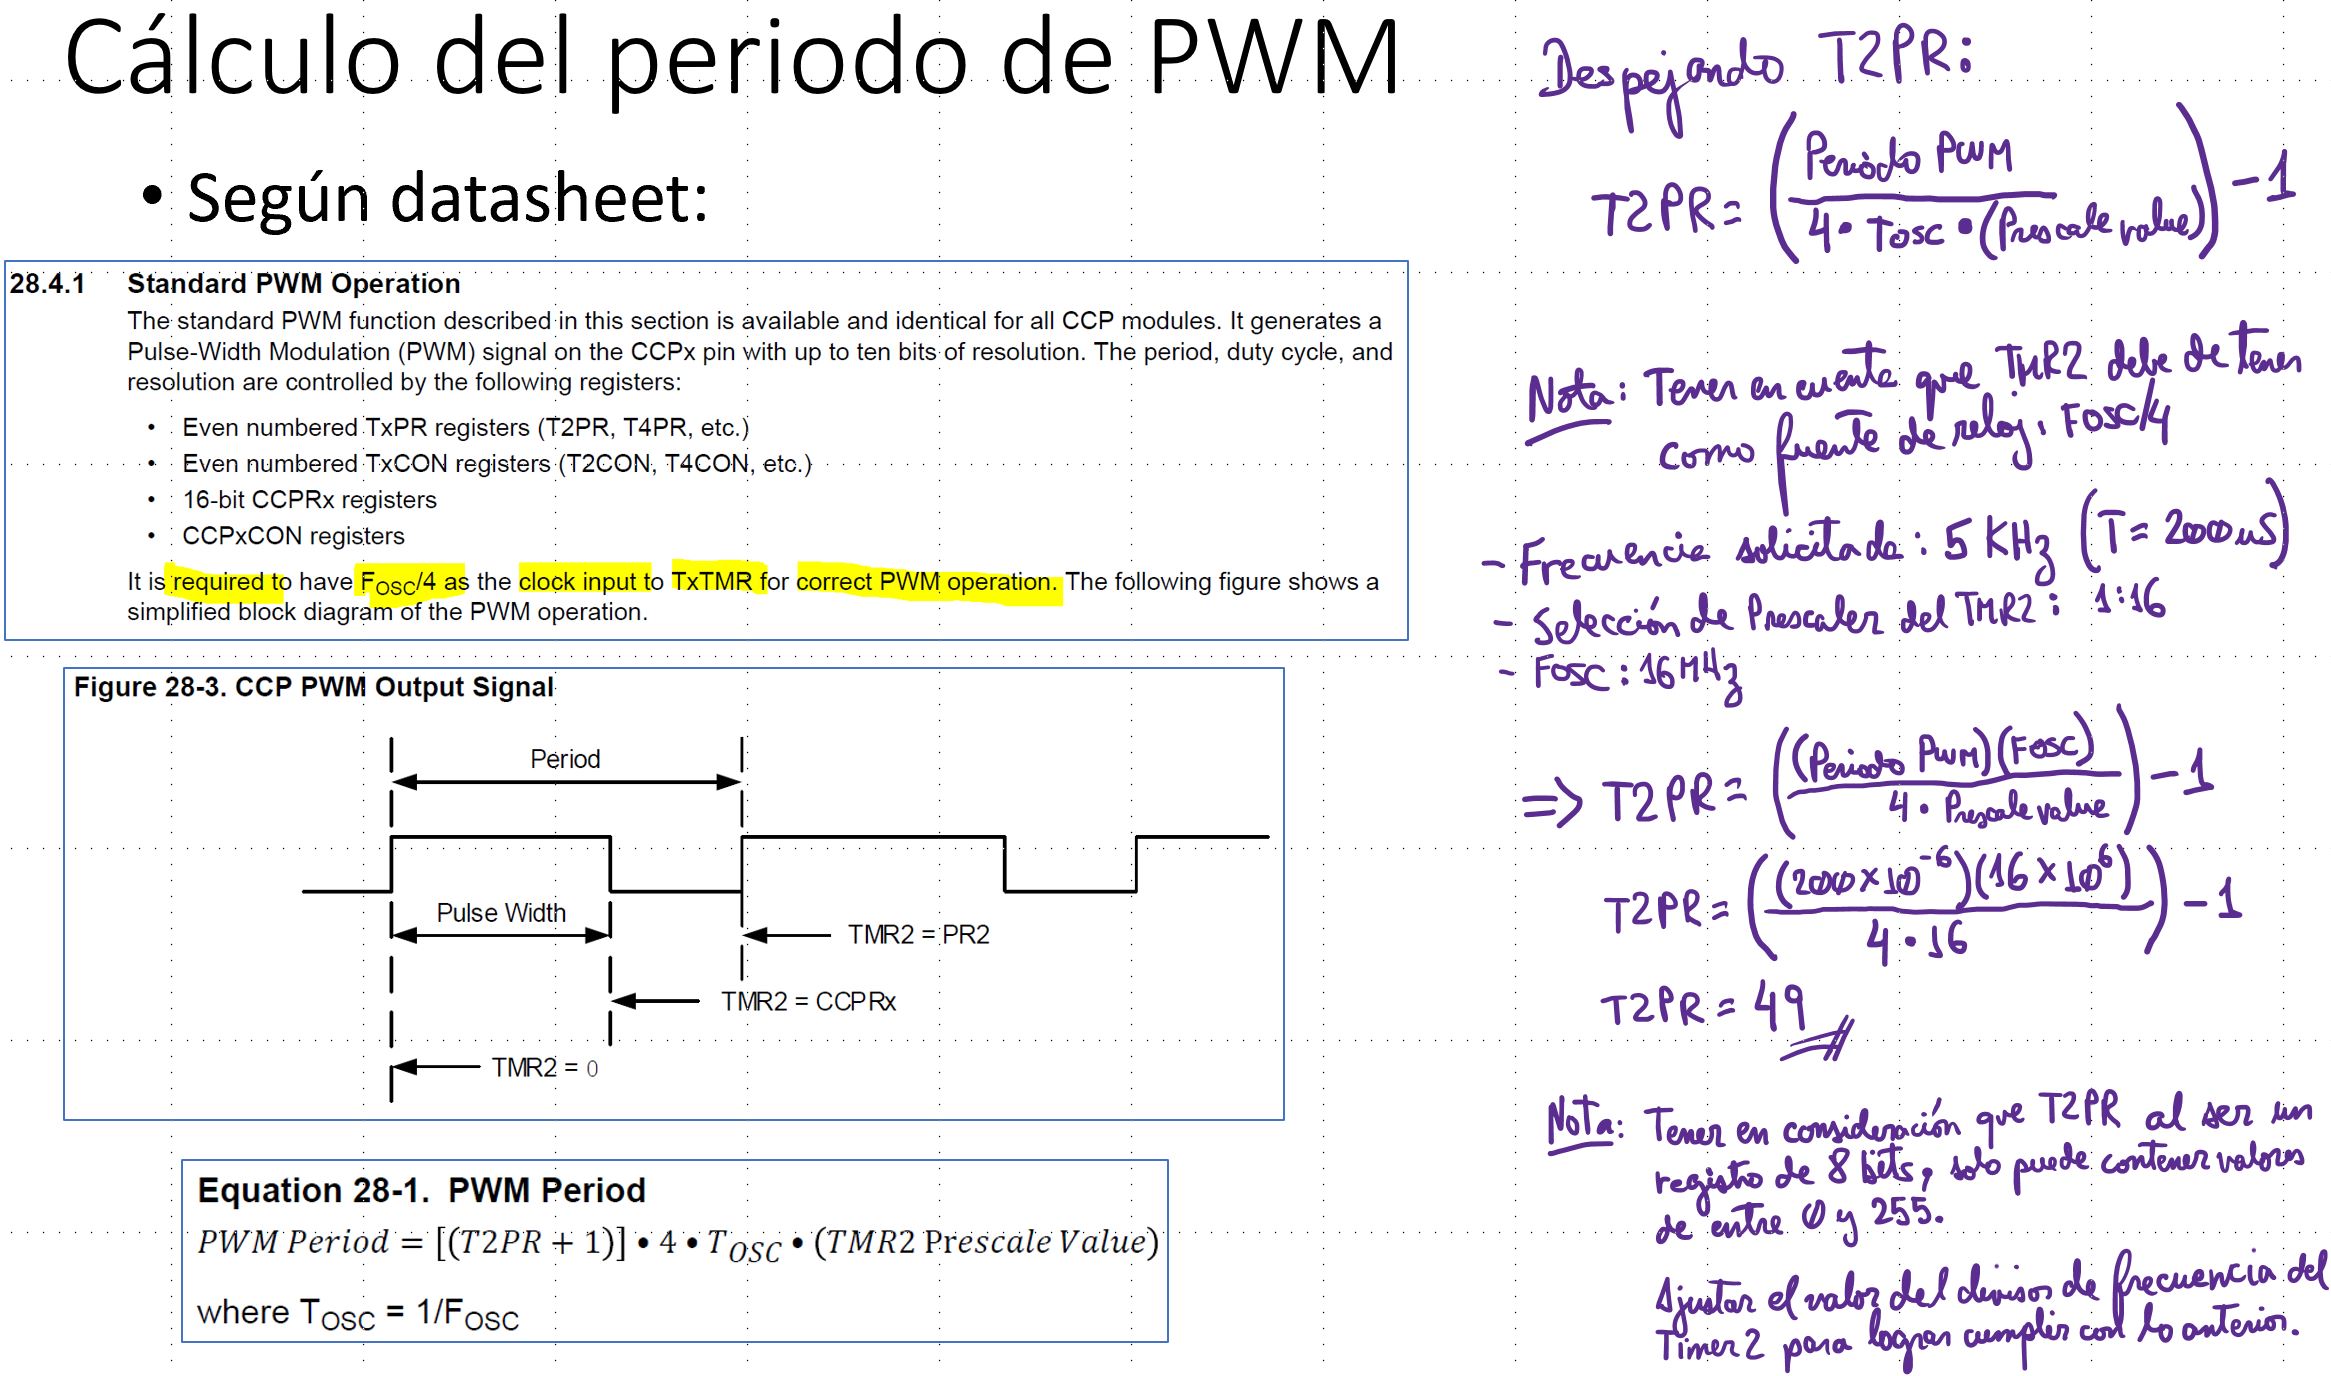 Cálculo del periodo de PWM
• Según datasheet:
28.4.1 Standard PWM Operation
The standard PWM function described in this section is available and identical for all CCP modules. It generates a
Pulse-Width Modulation (PWM) signal on the CCPx pin with up to ten bits of resolution. The period, duty cycle, and
resolution are controlled by the following registers:
• Even numbered TxPR registers (T2PR, T4PR, etc.)
• Even numbered TxCON registers (T2CON, T4CON, etc.)
• 16-bit CCPRx registers
• CCPxCON registers
It is required to have FOSC/4 as the clock input to TxTMR for correct PWM operation. The following figure shows a
simplified block diagram of the PWM operation.
Figure 28-3. CCP PWM Output Signal
Period
Pulse Width
TMR2 = PR2
TMR2 = CCPRx
TMR2 = 0
Equation 28-1. PWM Period
PWM Period = [(T2PR + 1)] • 4 • TOSC • (TMR2 Prescale Value)
where TOSC = 1/FOSC
Despejando T2PR:
T2PR = (Periodo PWM / 4 • Tosc • (Prescale value)) - 1
Nota: Tener en cuenta que TMR2 debe de tener
como fuente de reloj: Fosc/4
- Frecuencia solicitada: 5 KHz (T = 2000uS)
- Selección de Prescaler del TMR2: 1:16
- Fosc: 16MHz
=> T2PR = ((Periodo PWM)(Fosc) / 4 • Prescale value) - 1
T2PR = ((2000×10^-6)(16×10^6) / 4 • 16) - 1
T2PR = 49
Nota: Tener en consideración que T2PR al ser un
registro de 8 bits, solo puede contener valores
de entre 0 y 255.
Ajustar el valor del divisor de frecuencia del
Timer2 para lograr cumplir con lo anterior.